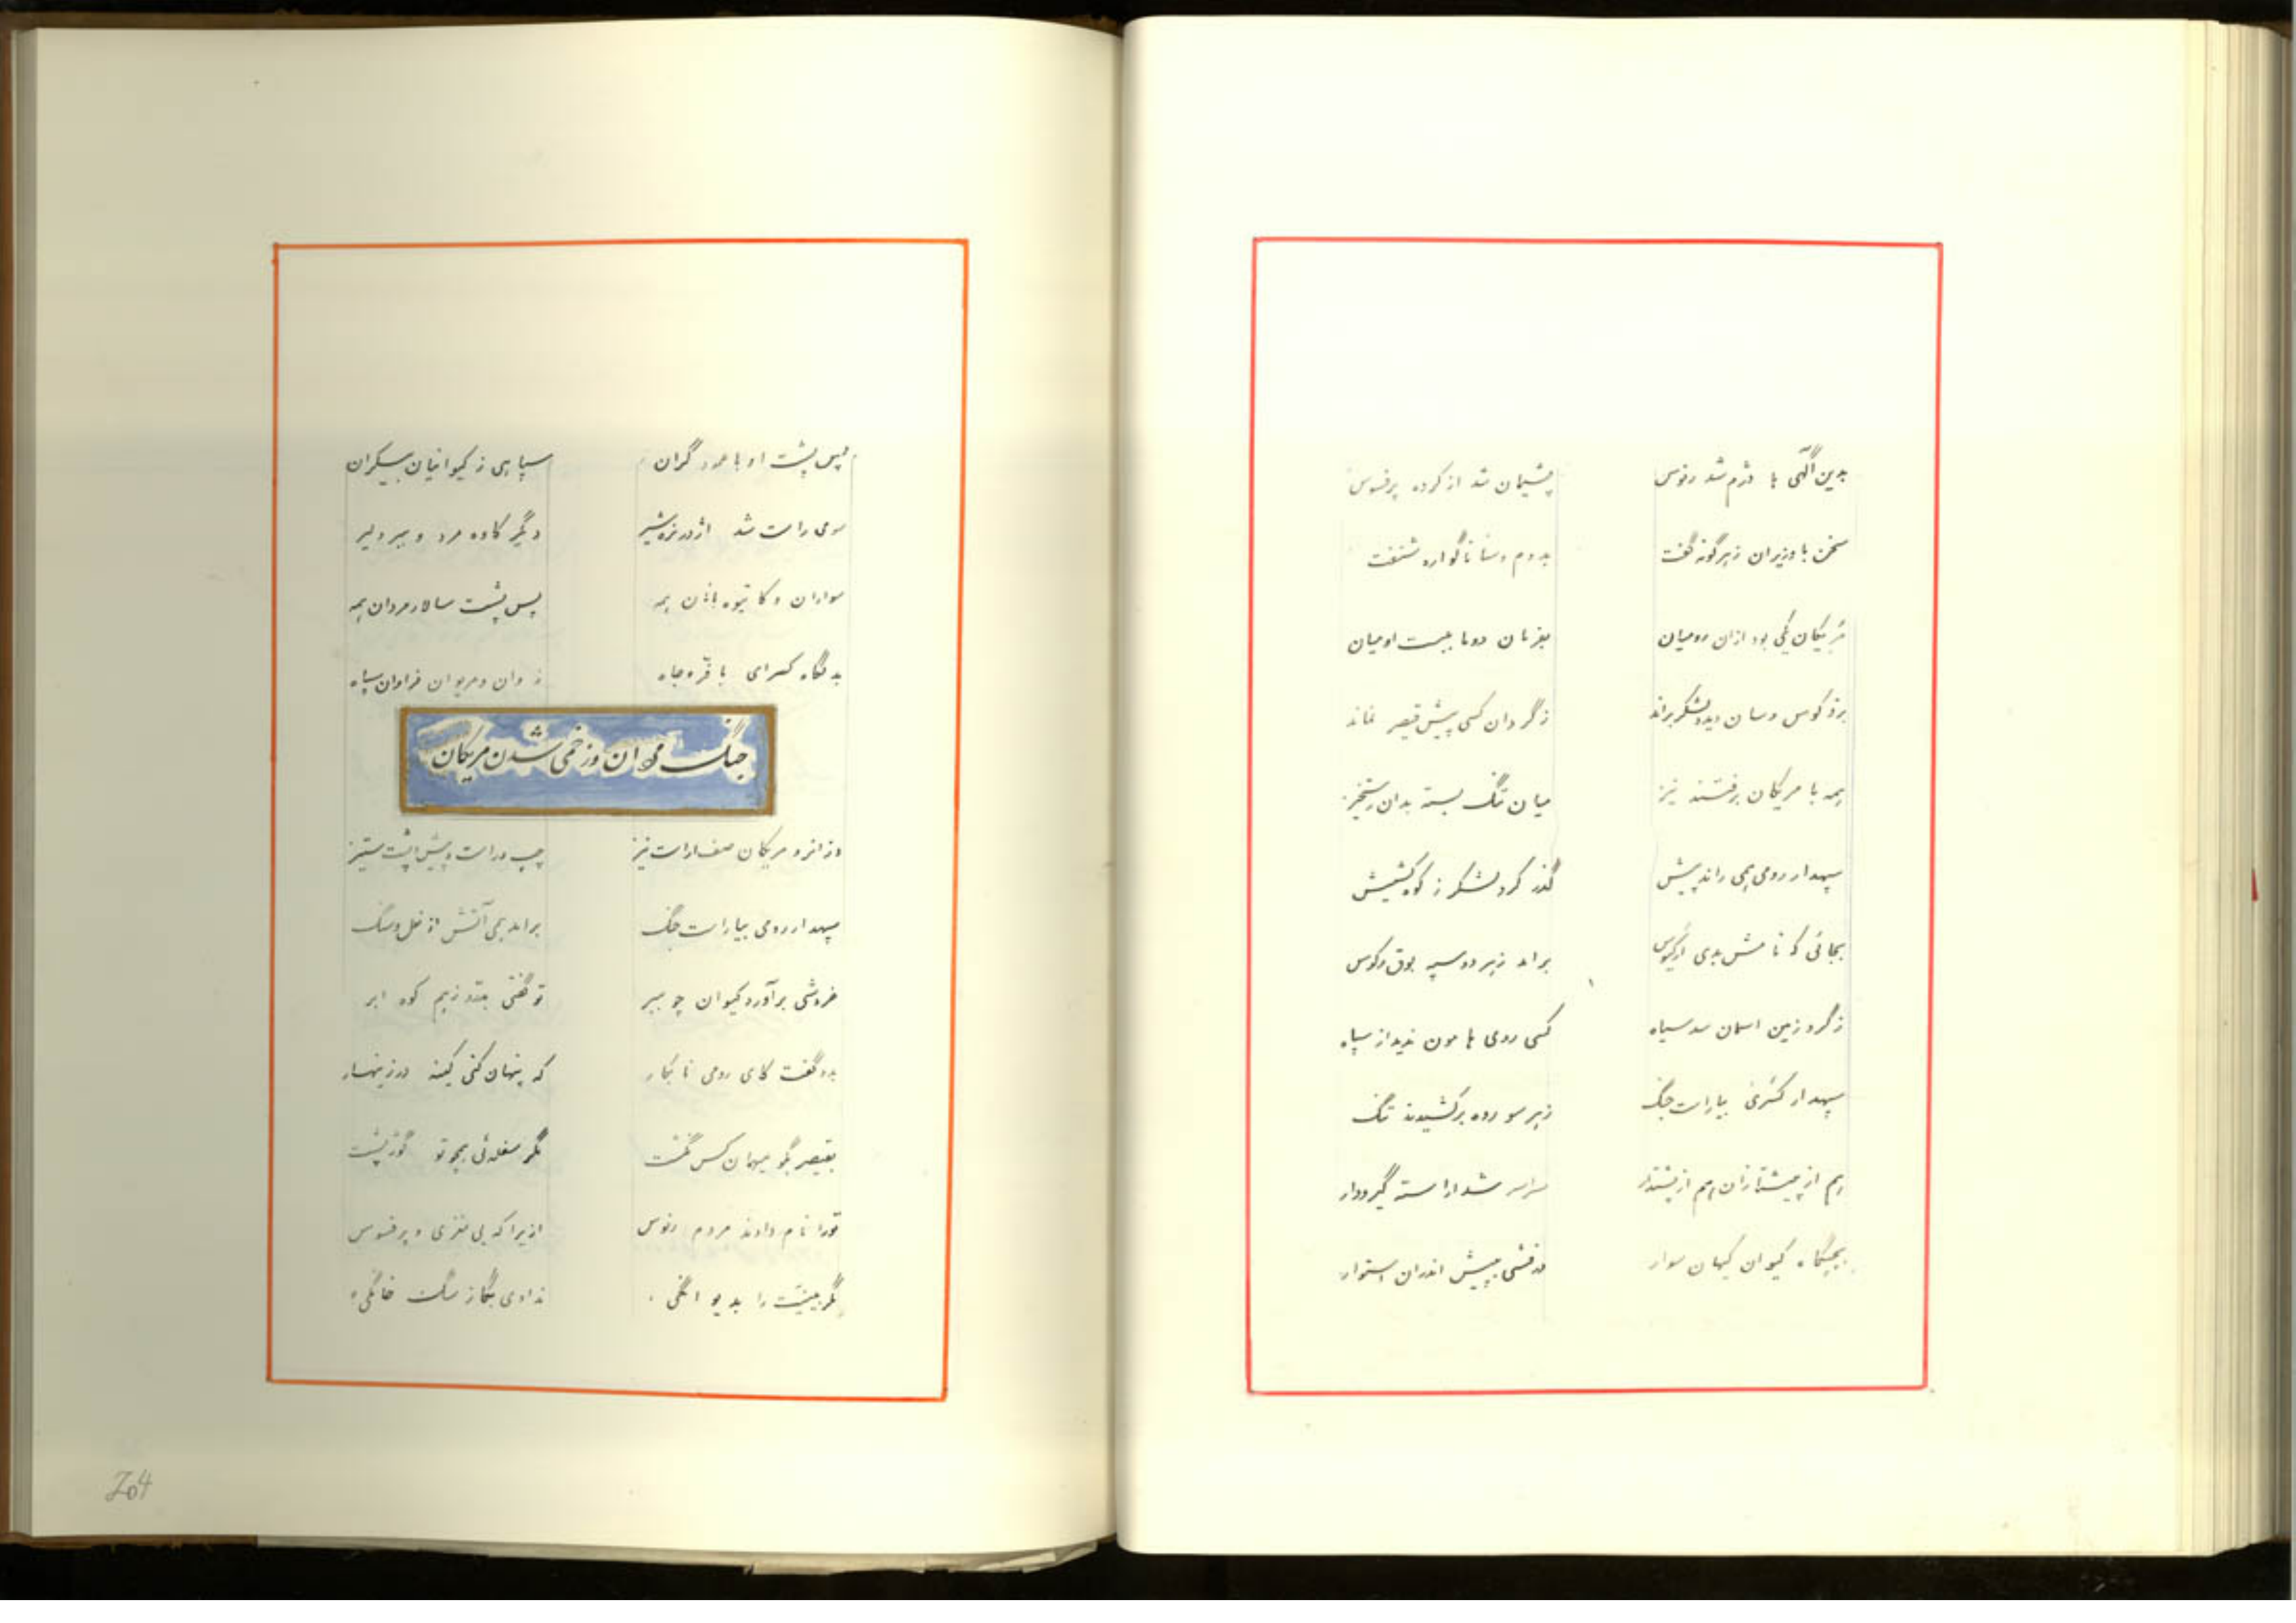 بدین آگهی ها دژم شد رنوس پشیمان شد از کرده پرفسوس
سخن با وزیران زهرگونه گفت بدوم وسنا ناگواره شنفت
مریکان یکی بود ازان رومیان بفرمان دوما ببست او میان
برذ کوس وسان دیده لشکر براند زگردان کسی پیش قیصر نماند
همه با مریکان برفتند نیز میان تنگ بسته بدان رستخیز
سپهدار رومی همی راند پیش گذر کرد لشکر ز کوه کشیش
بجائی که نامش بدی ارکیوس براند زهر دو سپه بوق وکوس
زگرد زمین اسمان سد سیاه کسی روی هامون ندید از سپاه
سپهدار کسری بیاراست جنگ زهر سو رده برکشیدند تنگ
هم از پیشتازان هم از پشتدار سراسر شد اراسته گیرودار
بجنگاه کیوان کیهان سوار درفشی بپیش اندران استوار
پس پشت او با عمود گران سپاهی ز کیوانیان بیکران
سوی راست شد اژدر نره شیر دگر کاوه مرد و ببر دلیر
سواران و کاتیوه بانان همه پس پشت سالار مردان همه
بدنگاه کسرای با فره جاه ز وان ومریوان فراوان سپاه
جنگ مهران وزخمی شدن مریکان
وزانرو مریکان صف اراست نیز چپ وراست وپیش وپشت ستیز
سپهدار رومی بیاراست جنگ براند همی آتش از نعل وسنگ
خروشی برآورد کیوان چو ببر تو گفتی بتندر زهم کوه ابر
بدو گفت کای رومی نابکار که پنهان کنی کینه در زینهار
بقیصر بگو میهمان کس نکشت مگر سفله ئی همچو تو گوژپشت
تورا نام دادند مردم رنوس ازیرا که بی مغزی و پرفسوس
نگر بینیت را بدیوانگی ندادی بگاز سگت خانگی
204